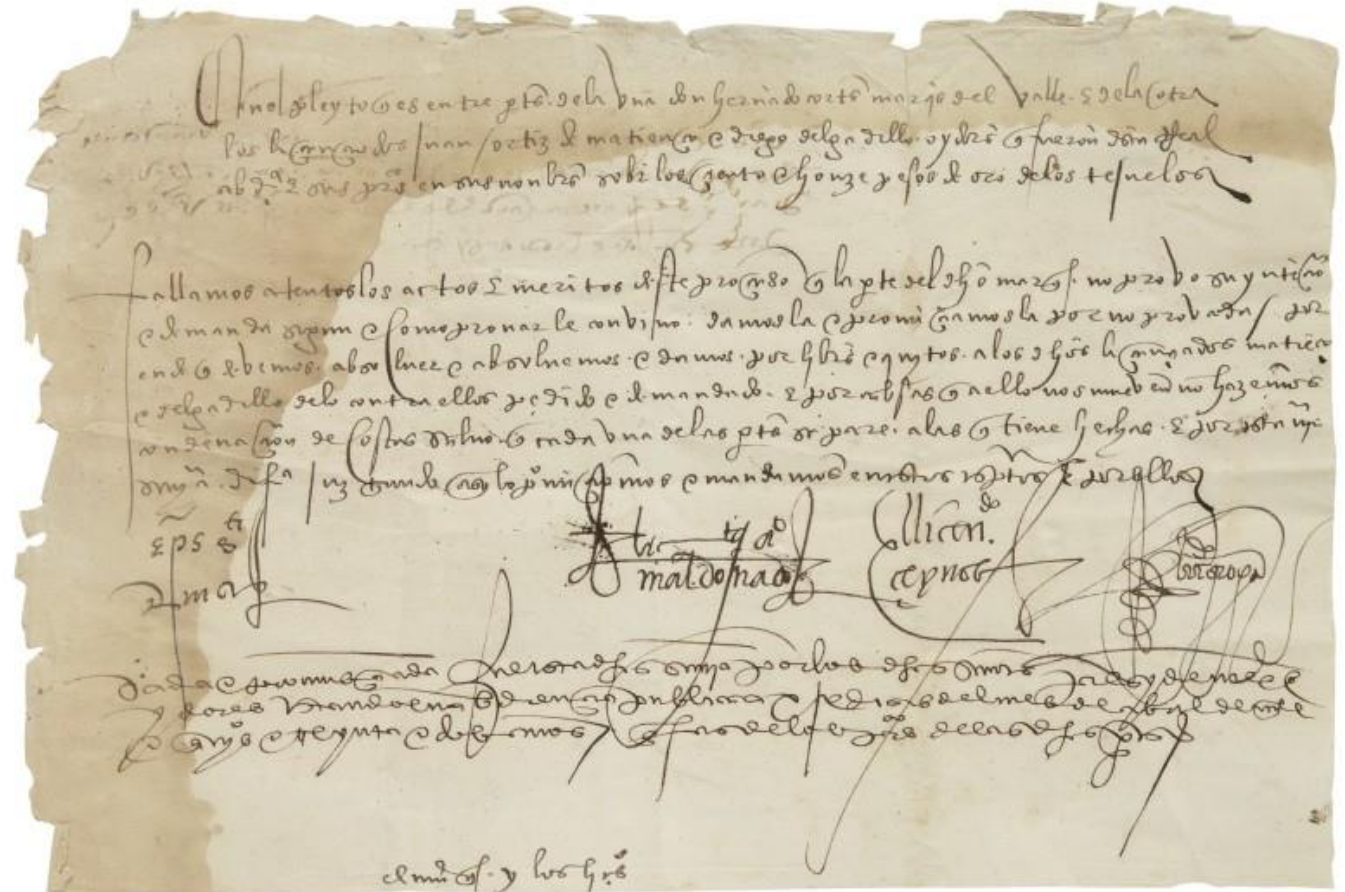 En el pleyto q es entre ptes de la una don hernãdo cortes marqs del valle. E de la otra
los licenciados Juan ortiz de matienço e diego delgadillo oydores q fueron desta Real
abdia E sus prores en sus nonbres sobre los ciento e honze pesos de oro de los tejuelos
fallamos atentos los actos E meritos deste proceso q la pte del dho marqs. no provo su yntenciõ
e demanda segun e como provar le convino. damosla e pronunciamosla por no provada / por
ende q devemos absolver e absolvemos e damos por libres e quytos. a los dhos licenciados matiẽço
e delgadillo de lo contra ellos pedido e demandado. E por cabsas q a ello nos mueven no hazemos
condenacion de costas salvo q cada una de las ptes se pare. a las q tiene hechas. E por esta nra
snya. difa juzgando asy lo pronunciamos e mandamos en estos escriptos E por ellos
Eps sti
dmgo
lic
maldonado
El licen.do
ceynos
Dada e pronunciada fue esta dha snya por los dhos señores presydente E
oydores estando en abdiencia publica a dias del mes de abril de mile
e quis e treynta e dos años
el marqs. y los